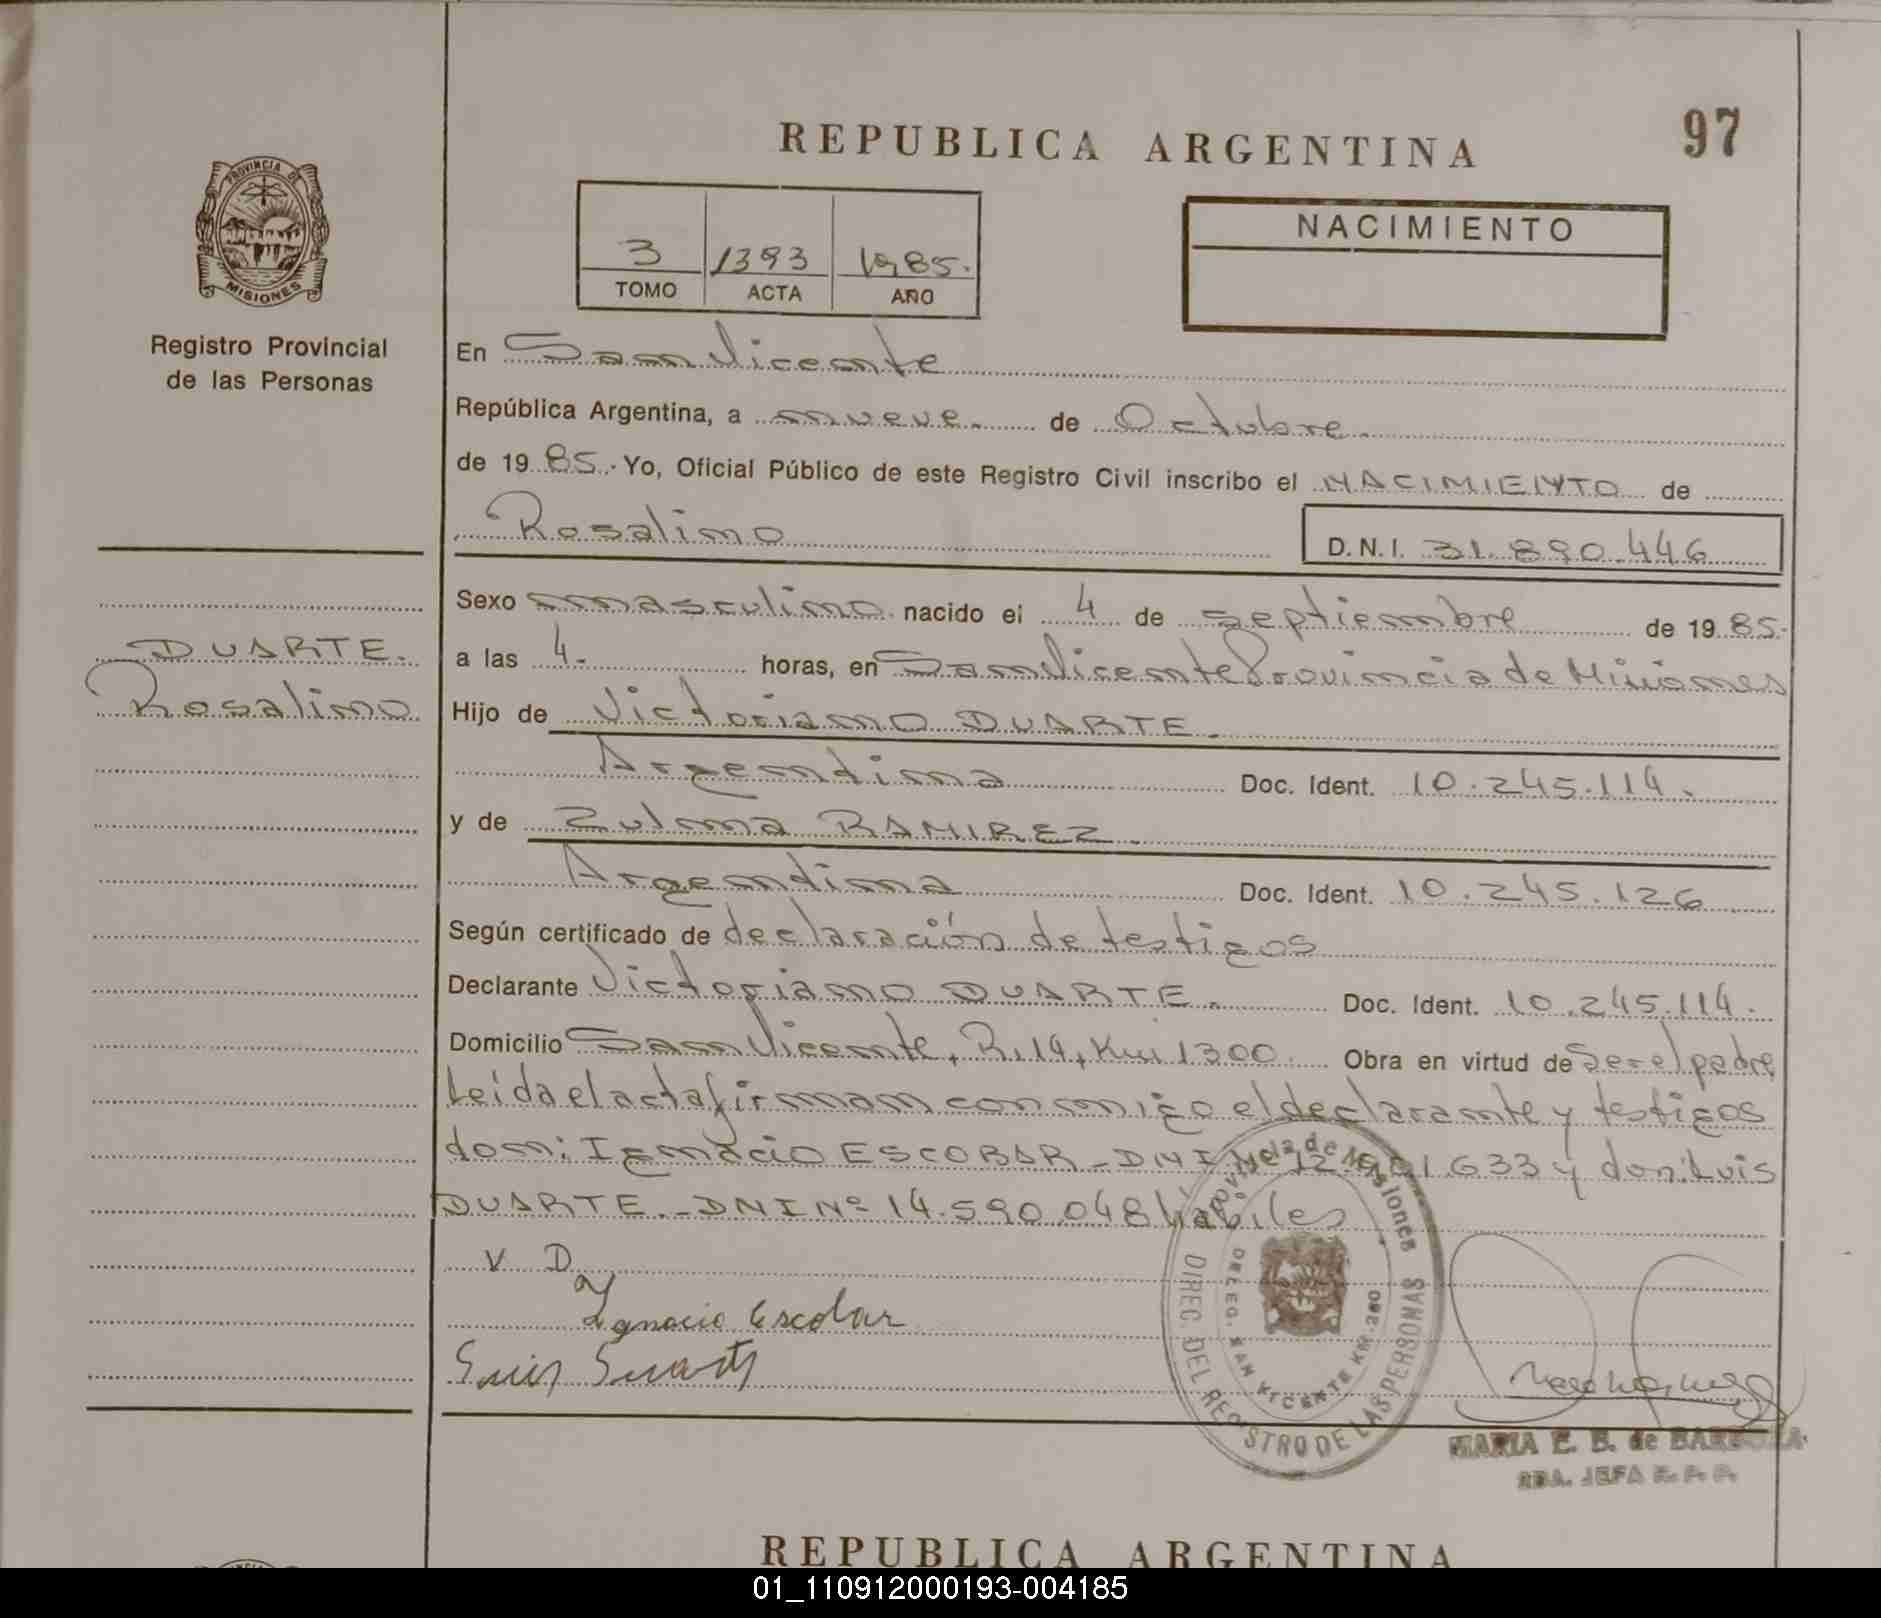 REPUBLICA ARGENTINA
97
PROVINCIA DE
MISIONES
Registro Provincial
de las Personas
3 1393 1985.
TOMO ACTA AÑO
NACIMIENTO
En San Vicente
República Argentina, a nueve. de Octubre.
de 1985. Yo, Oficial Público de este Registro Civil inscribo el NACIMIENTO de
Rosalino D.N.I. 31.890.446
DUARTE.
Rosalino
Sexo masculino nacido el 4 de septiembre de 1985.
a las 4. horas, en San Vicente Provincia de Misiones
Hijo de Victoriano DUARTE.
Argentina Doc. Ident. 10.245.114.
y de Zulma RAMIREZ.
Argentina Doc. Ident. 10.245.126
Según certificado de declaración de testigos
Declarante Victoriano DUARTE. Doc. Ident. 10.245.114.
Domicilio San Vicente, R. 14, Km 1300 Obra en virtud de Ser el padre
Leída el acta firman conmigo el declarante y testigos
don: Ignacio ESCOBAR - DNI Nº 633 y don: Luis
DUARTE. - DNI Nº 14.590.048 hábiles
V. D.
Ignacio Escobar
Luis Duarte
Provincia de Misiones
DIREC. DEL REGISTRO DE LAS PERSONAS
DELEG. SAN VICENTE KM. 280
MARIA E. B. de BARBOZA
JEFA R. P. P.
REPUBLICA ARGENTINA
01_110912000193-004185